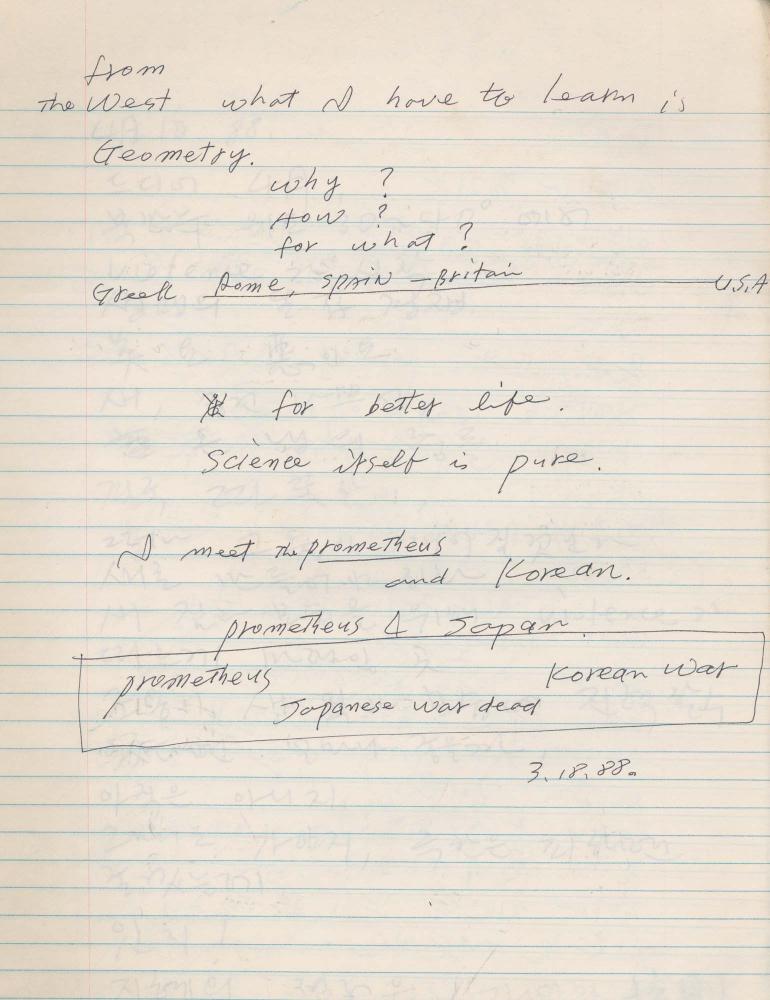 from
the West what I have to learn is
Geometry.
why ?
How ?
for what ?
Greek Rome, SPAIN – Britain U.S.A
for better life.
Science itself is pure.
I meet the prometheus
and Korean.
prometheus & Japan.
prometheus Korean War
Japanese war dead
3.18.88.